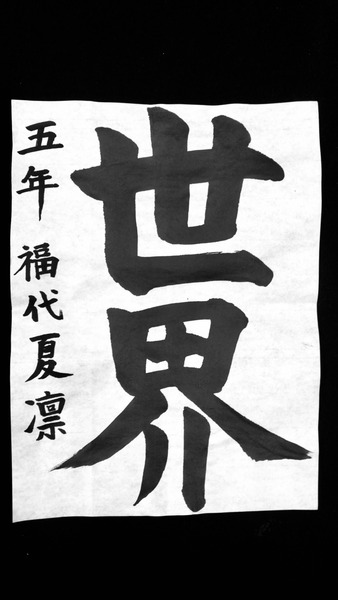 世界
五年 福代夏凛